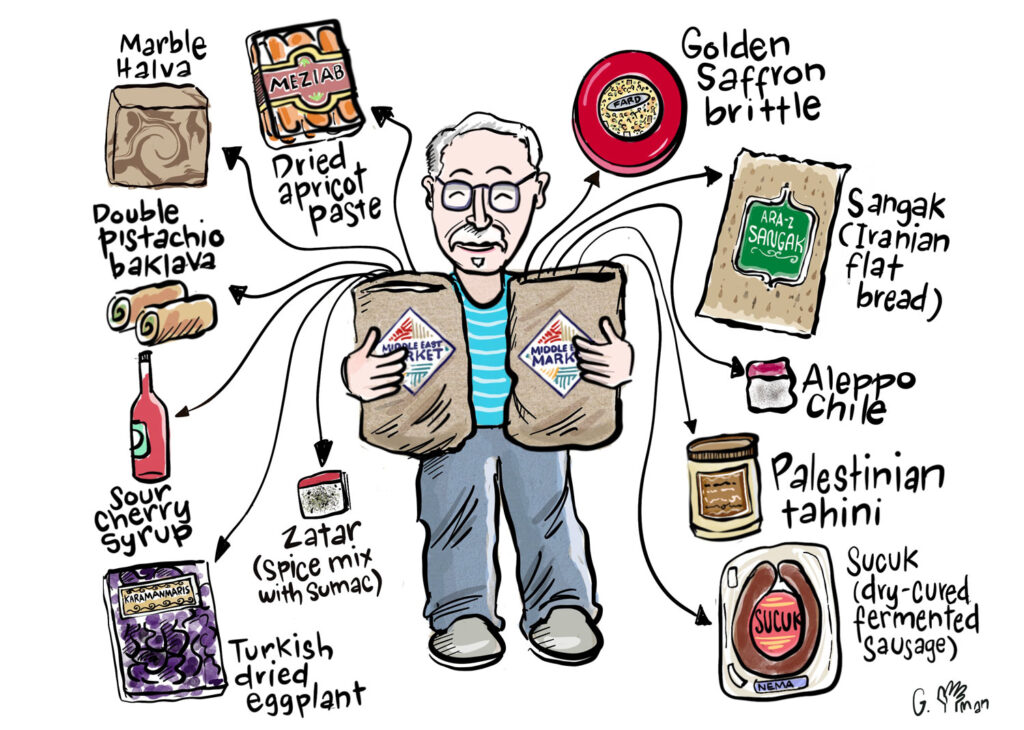 Marble
Halva
MEZIAB
Dried
apricot
paste
Double
pistachio
baklava
Sour
cherry
syrup
Zatar
(Spice mix
with Sumac)
KARAMANMARIS
Turkish
dried
eggplant
MIDDLE EAST
RKET
MIDDLE E
MARK
Golden
Saffron
brittle
FARD
ARA-Z
SANGAK
Sangak
(Iranian
flat
bread)
Aleppo
Chile
Palestinian
tahini
SUCUK
NEMA
Sucuk
(dry-cured
fermented
Sausage)
G.
man